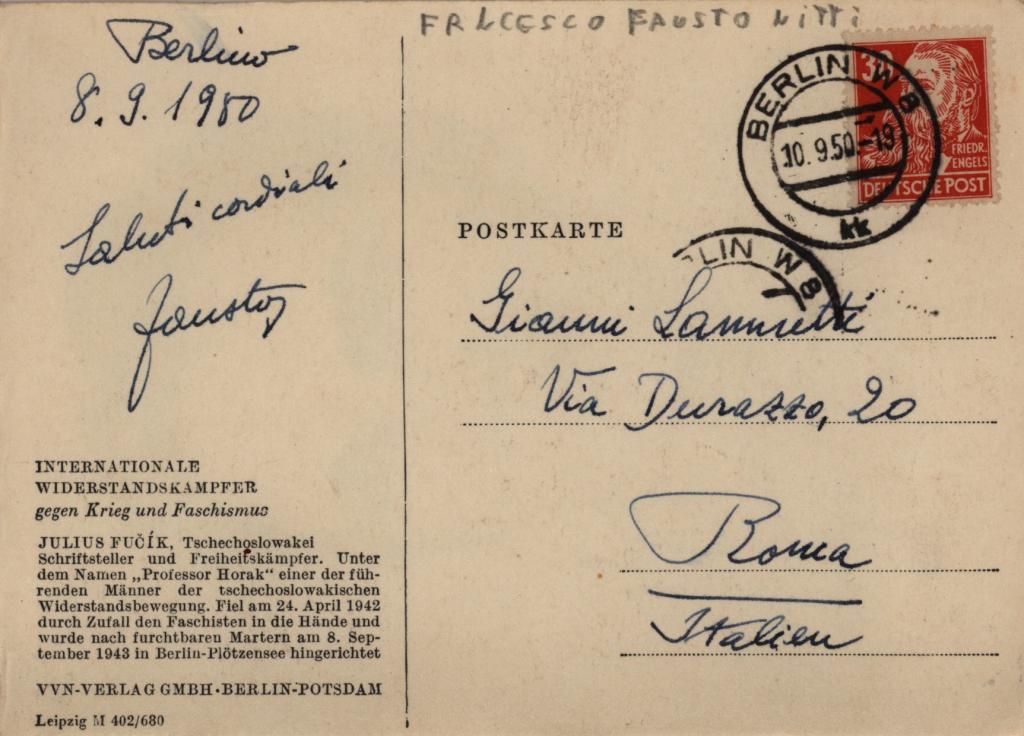 FRLCESCO FAUSTO NITTI
Berlino
8.9.1950
Saluti cordiali
Fausto
30
FRIEDR.
ENGELS
DEUTSCHE POST
BERLIN W8
10.9.50.-19
kk
POSTKARTE
LIN W8
Gianni
Via Durazzo, 20
Roma
Italien
INTERNATIONALE
WIDERSTANDSKAMPFER
gegen Krieg und Faschismus
JULIUS FUČÍK, Tschechoslowakei
Schriftsteller und Freiheitskämpfer. Unter
dem Namen „Professor Horak“ einer der füh-
renden Männer der tschechoslowakischen
Widerstandsbewegung. Fiel am 24. April 1942
durch Zufall den Faschisten in die Hände und
wurde nach furchtbaren Martern am 8. Sep-
tember 1943 in Berlin-Plötzensee hingerichtet
VVN-VERLAG GMBH·BERLIN-POTSDAM
Leipzig M 402/680